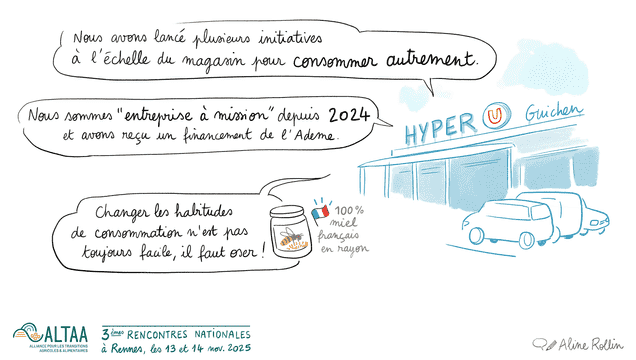 Nous avons lancé plusieurs initiatives
à l'échelle du magasin pour consommer autrement.
Nous sommes "entreprise à mission" depuis 2024
et avons reçu un financement de l'Ademe.
HYPER U Guichen
Changer les habitudes
de consommation n'est pas
toujours facile, il faut oser !
100%
miel
français
en rayon
ALTAA
ALLIANCE POUR LES TRANSITIONS
AGRICOLES & ALIMENTAIRES
3èmes RENCONTRES NATIONALES
à Rennes, les 13 et 14 nov. 2025
Aline Rollin